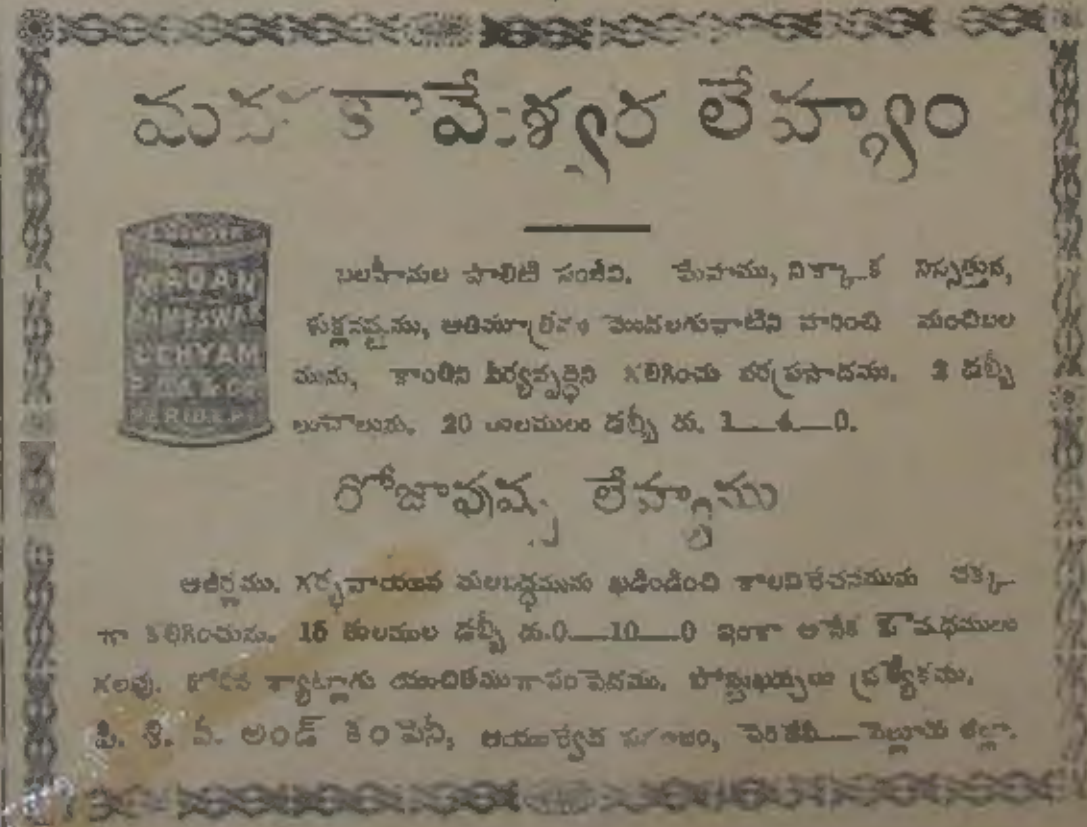 కామేశ్వర లేహ్యం
MADAN
KAMESWAR
LEHYAM
P. C. V. & CO
PERIDEPI
బలహీనుల పాలిటి సంజీవి. మేహము, నిస్సత్తువ,
శుక్లనష్టము, అతిమూత్రము మొదలగువాటిని హరించి మంచిబల
మును, కాంతిని వీర్యవృద్ధిని కలిగించు వరప్రసాదము. 2 డబ్బీ
లుచాలును. 20 తులములు డబ్బీ రు. 1—4—0.
రోజాపుష్ప లేహ్యము
అజీర్ణము. గర్భవాయువు మలబద్ధమును ఖండించి కాలవిరేచనమును చక్క
గా కలిగించును. 15 తులముల డబ్బీ రు.0—10—0 ఇంకా అనేక ఔషధములు
గలవు. కోరిన క్యాట్లాగు యుచితముగాపంపెదము. పోష్టుఖర్చులు ప్రత్యేకము.
పి. సి. వి. అండ్ కంపెనీ, ఆయుర్వేద సమాజం, పెరిదేపి—నెల్లూరు జిల్లా.